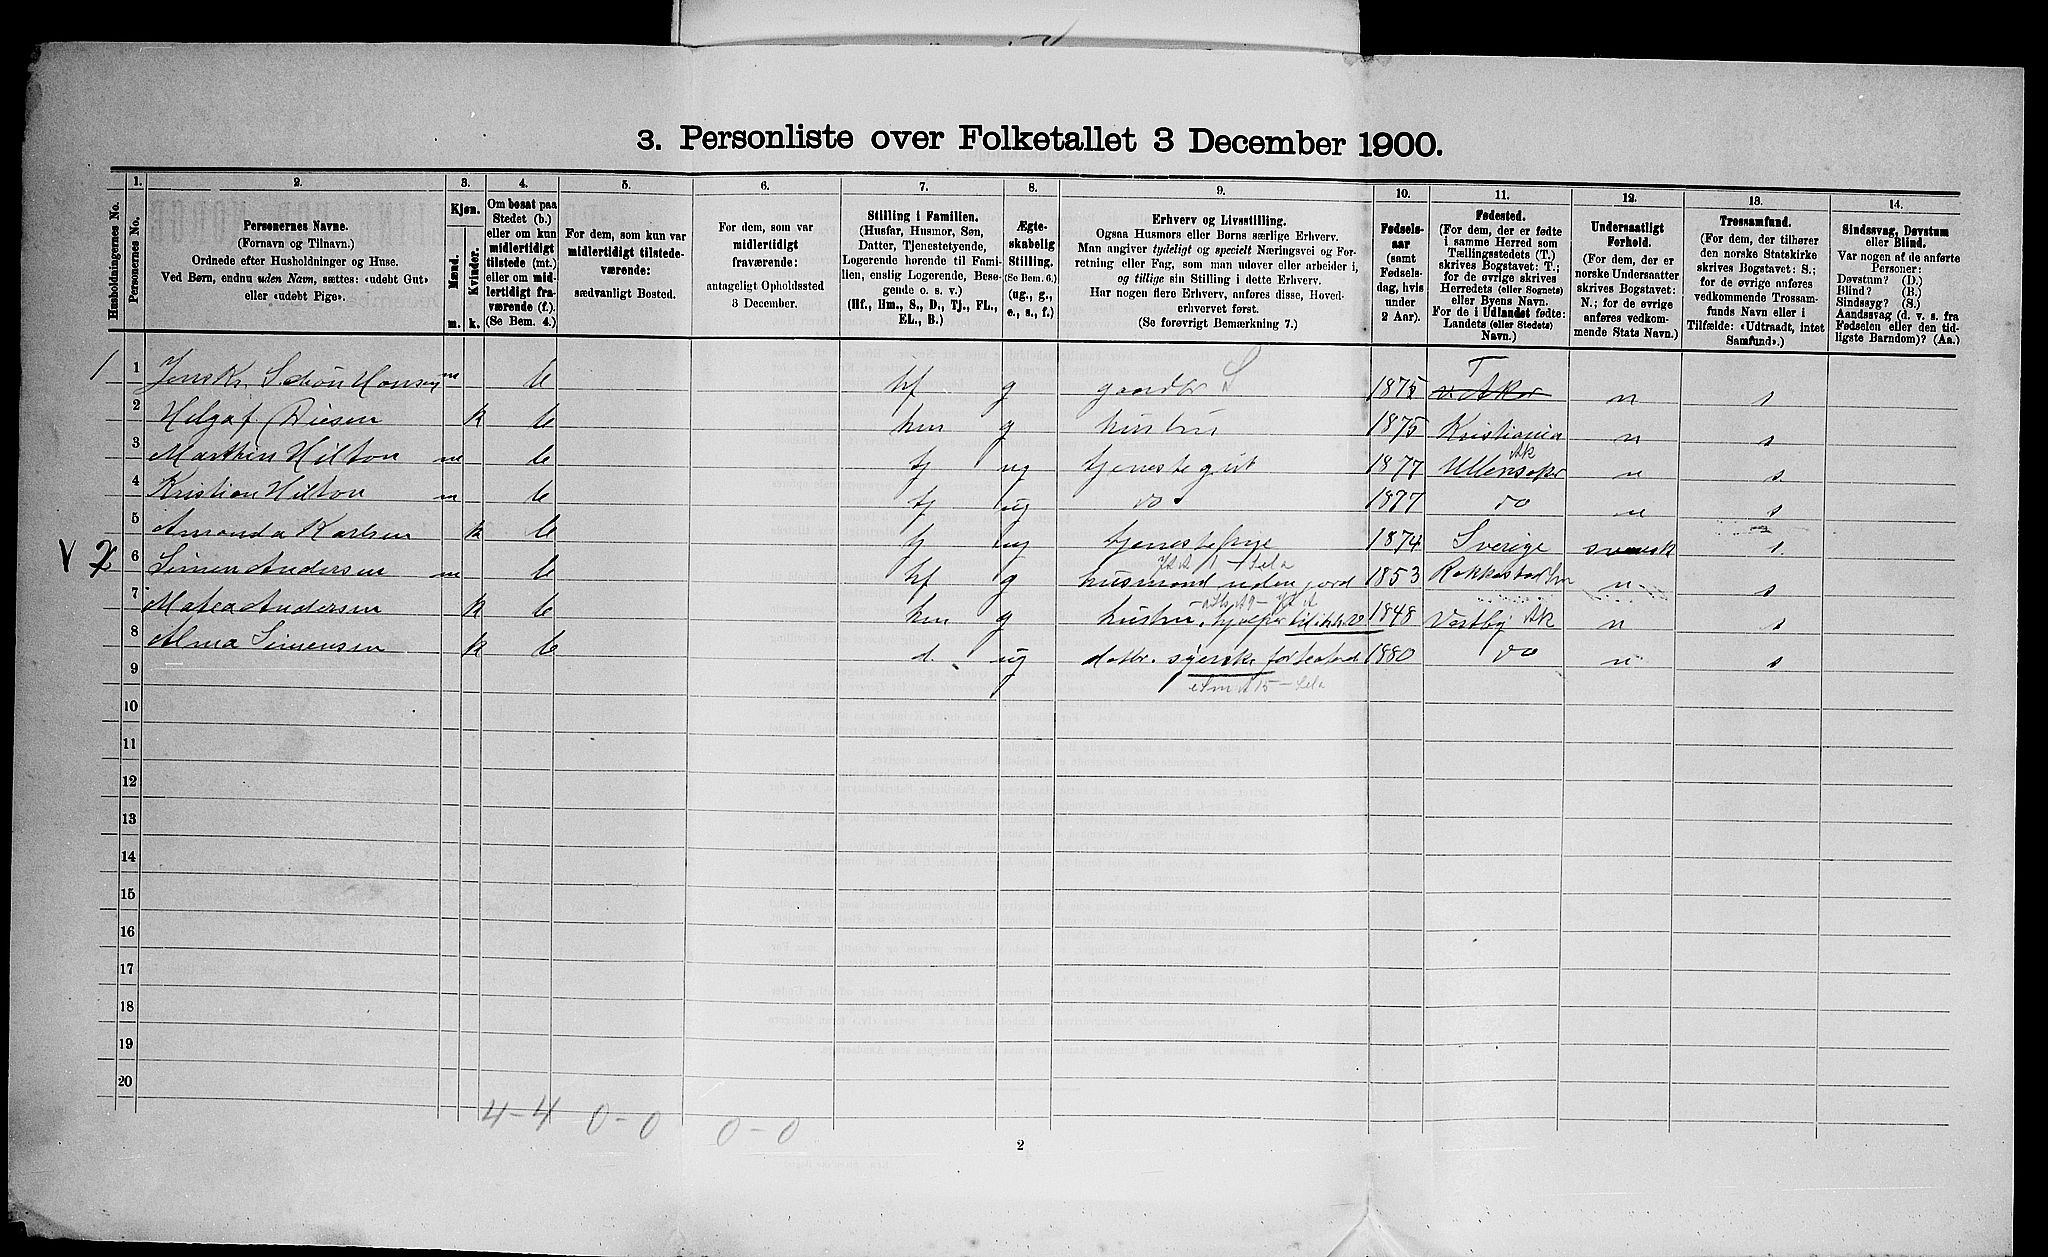 3. Personliste over Folketallet 3 December 1900.
Husholdningernes No.
1.
Personernes No.
2.
Personernes Navne.
(Fornavn og Tilnavn.)
Ordnede efter Husholdninger og Huse.
Ved Børn, endnu uden Navn, sættes: «udøbt Gut»
eller «udøbt Pige».
3.
Kjøn.
Mænd.
Kvinder.
m. k.
4.
Om bosat paa
Stedet (b.)
eller om kun
midlertidigt
tilstede (mt.)
eller om mid-
lertidigt fra-
værende (f.).
(Se Bem. 4.)
5.
For dem, som kun var
midlertidigt tilstede-
værende:
sædvanligt Bosted.
6.
For dem, som var
midlertidigt
fraværende:
antageligt Opholdssted
3 December.
7.
Stilling i Familien.
(Husfar, Husmor, Søn,
Datter, Tjenestetyende,
Logerende hørende til Fami-
lien, enslig Logerende, Besø-
gende o. s. v.)
(Hf., Hm., S., D., Tj., FL.,
EL., B.)
8.
Ægte-
skabelig
Stilling.
(Se Bem. 6.)
(ug., g.,
e., s., f.)
9.
Erhverv og Livsstilling.
Ogsaa Husmors eller Børns særlige Erhverv.
Man angiver tydeligt og specielt Næringsvei og For-
retning eller Fag, som man udøver eller arbeider i,
og tillige sin Stilling i dette Erhverv.
Har nogen flere Erhverv, anføres disse, Hoved-
erhvervet først.
(Se forøvrigt Bemærkning 7.)
10.
Fødsels-
aar
(samt
Fødsels-
dag, hvis
under
2 Aar).
11.
Fødested.
(For dem, der er fødte
i samme Herred som
Tællingsstedets (T.)
skrives Bogstavet: T.;
for de øvrige skrives
Herredets (eller Sognets)
eller Byens Navn.
For de i Udlandet fødte:
Landets (eller Stedets)
Navn.)
12.
Undersaatligt
Forhold.
(For dem, der er
norske Undersaatter
skrives Bogstavet:
N.; for de øvrige
anføres vedkom-
mende Stats Navn.)
13.
Trossamfund.
(For dem, der tilhører
den norske Statskirke
skrives Bogstavet: S.;
for de øvrige anføres
vedkommende Trossam-
funds Navn eller i
Tilfælde: «Udtraadt, intet
Samfund».)
14.
Sindssvag, Døvstum
eller Blind.
Var nogen af de anførte
Personer:
Døvstum? (D.)
Blind? (B.)
Sindssyg? (S.)
Aandssvag (d. v. s. fra
Fødselen eller den tid-
ligste Barndom)? (Aa.)
1 1 Jens Kr. Schiøn Hansen m b hf g gaardbr S 1875 T n s
2 Helga f Riesen k b hm g hustru 1875 Kristiania n s
3 Marthin Hilton m b tj ug tjenestegut 1877 Ullensaker Ak n s
4 Kristian Hilton m b tj ug do 1877 do n s
5 Amanda Karlsen k b tj ug tjenestepige 1874 Sverige svensk s
V 2 6 Simen Andersen m b hf g husmand uden jord 1853 Rakkestad n s
7 Matea Andersen k b hm g hustru, hjælper 1848 Vestby Ak n s
8 Alma Simensen k b d. ug datter. syerske 1880 do n s
9
10
11
12
13
14
15
16
17
18
19
20
4-4 0-0 0-0
2